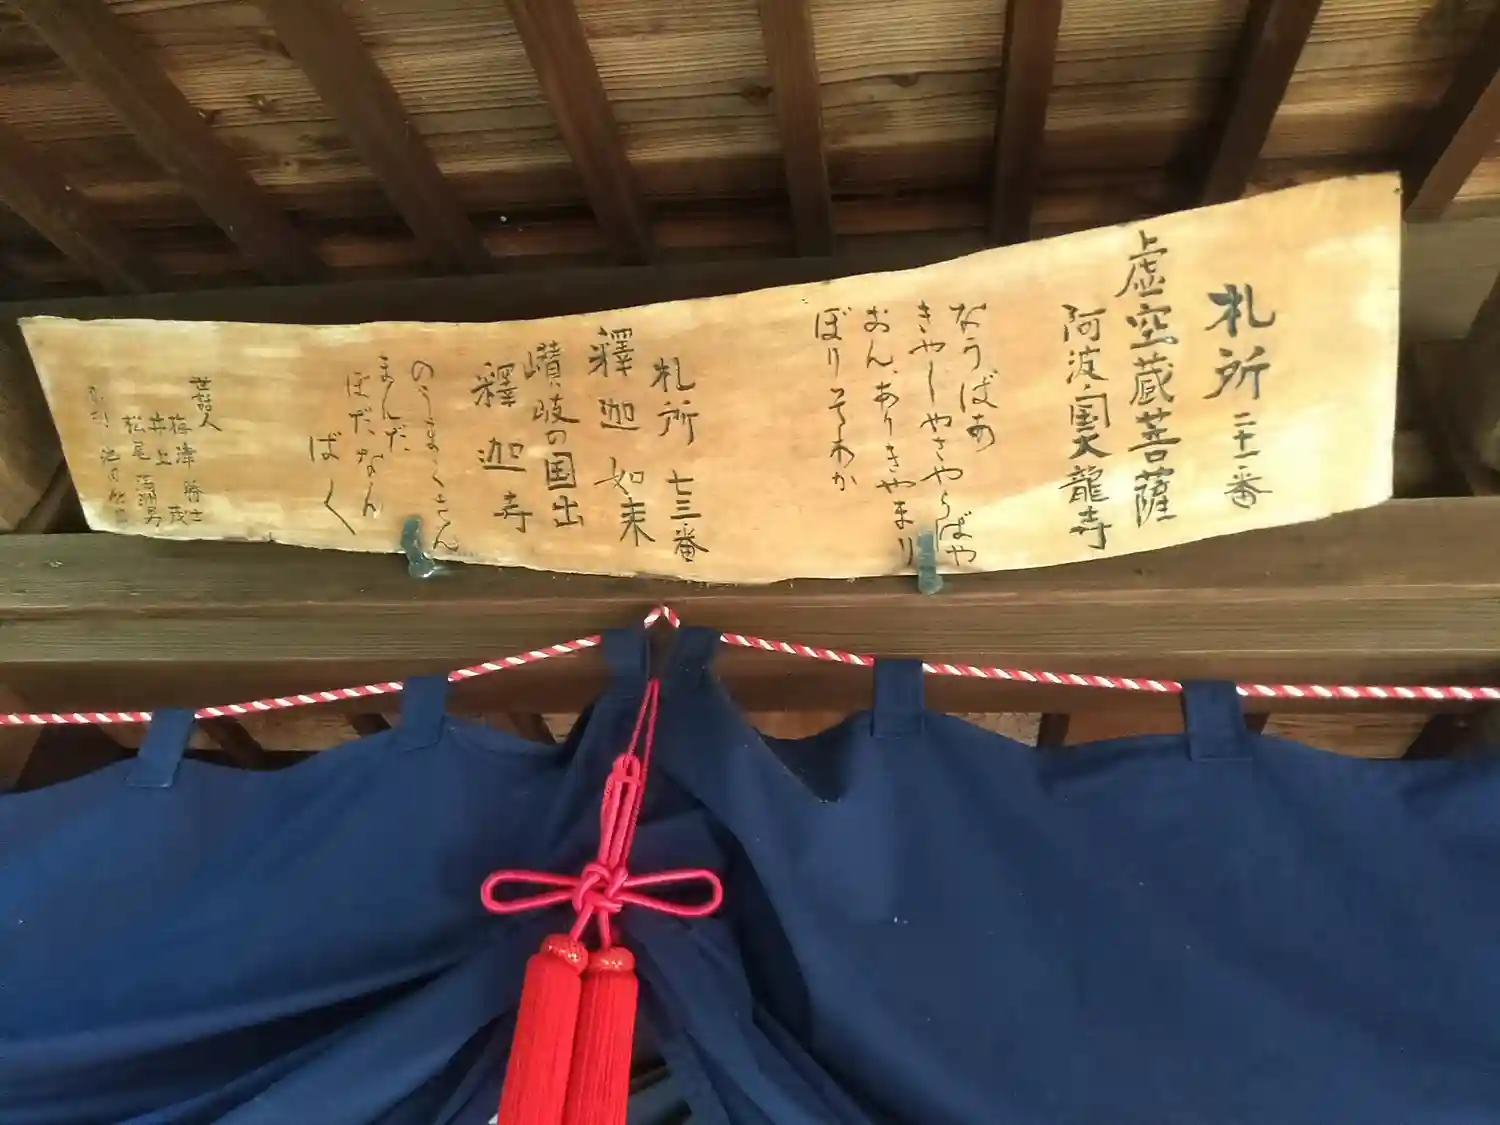 札所 二十一番
虚空蔵菩薩
阿波の国大龍寺
なうばあ
きやしやきやらばや
おん、ありきやまり
ぼりそわか
札所 七三番
釋迦如来
讃岐の国出
釋迦寺
のうまくさん
まんだ
ぼだなん
ばく
世話人
梅津
井上 茂
松尾 満男